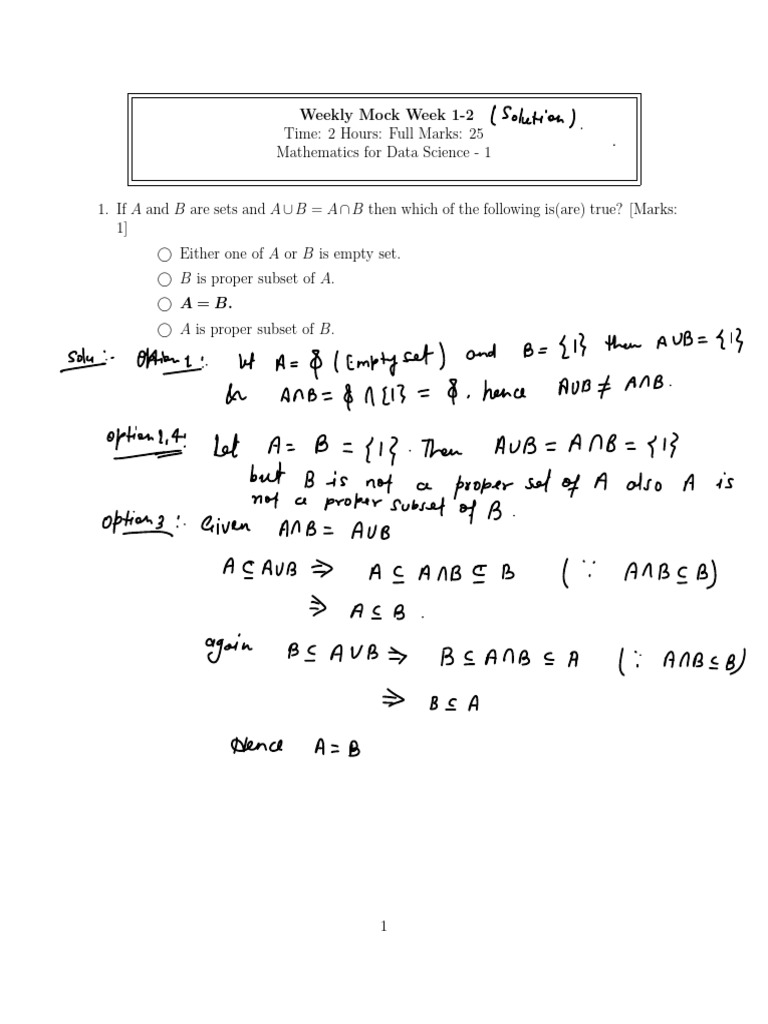 Weekly Mock Week 1-2 (Solution).
Time: 2 Hours: Full Marks: 25
Mathematics for Data Science - 1
1. If A and B are sets and A∪B = A∩B then which of the following is(are) true? [Marks:
1]
○ Either one of A or B is empty set.
○ B is proper subset of A.
○ A = B.
○ A is proper subset of B.
Solu :- Option 1 : let A = ϕ (Empty set) and B = {1} then A∪B = {1}
A∩B = ϕ ∩ {1} = ϕ. hence A∪B ≠ A∩B.
Option 2,4: Let A = B = {1}. Then A∪B = A∩B = {1}
but B is not a proper set of A also A is
not a proper subset of B.
Option 3 :. Given A∩B = A∪B
A ⊆ A∪B ⇒ A ⊆ A∩B ⊆ B (∵ A∩B ⊆ B)
⇒ A ⊆ B.
again B ⊆ A∪B ⇒ B ⊆ A∩B ⊆ A (∵ A∩B ⊆ B)
⇒ B ⊆ A
Hence A = B
1